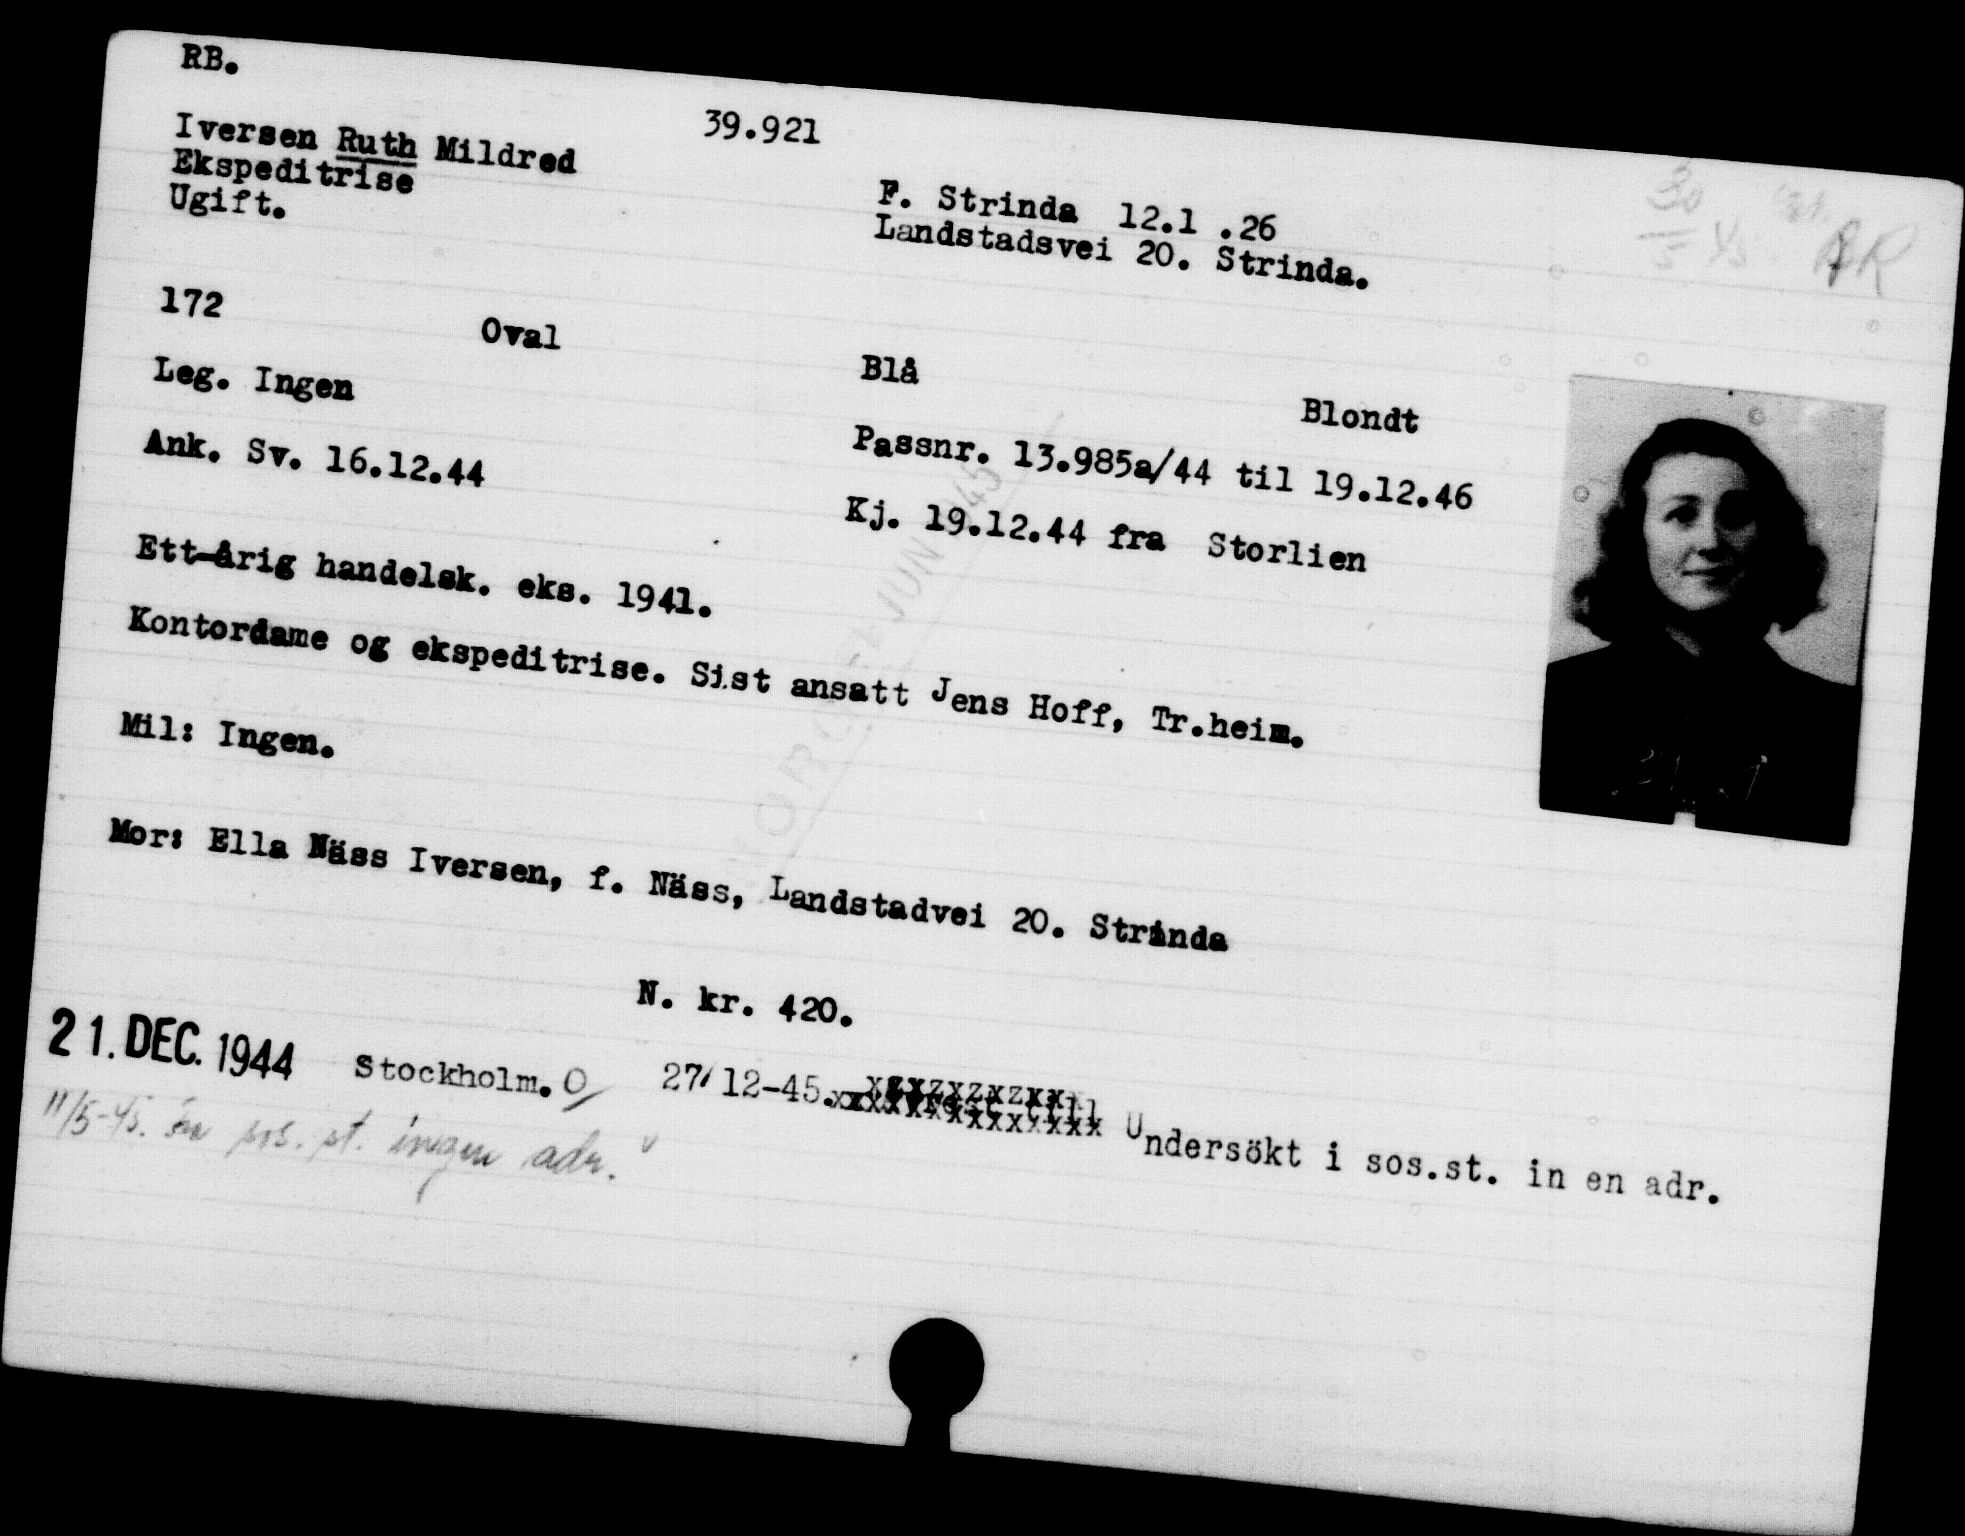 RB.
39.921
Iversen Ruth Mildred
Ekspeditrise
Ugift.
F. Strinda 12.1 .26
Landstadsvei 20. Strinda.
172 Oval Blå Blondt
Leg. Ingen
Passnr. 13.985a/44 til 19.12.46
Ank. Sv. 16.12.44
Kj. 19.12.44 fra Storlien
Ett-årig handelsk. eks. 1941.
Kontordame og ekspeditrise. Sist ansatt Jens Hoff, Tr.heim.
Mil: Ingen.
Mor: Ella Näss Iversen, f. Näss, Landstadvei 20. Strinda
N. kr. 420.
21. DEC. 1944 Stockholm. 27/12-45. Undersökt i sos.st. in en adr.
11/5-45. sos. st. ingen adr.
JUN 1945